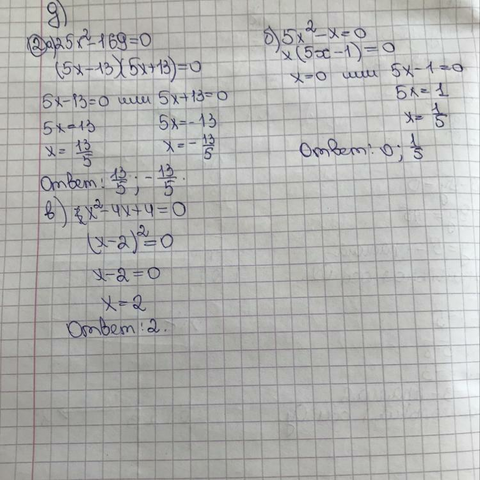 д)
② а) 25x² - 169 = 0
(5x - 13)(5x + 13) = 0
5x - 13 = 0 или 5x + 13 = 0
5x = 13 5x = -13
x = 13/5 x = -13/5
Ответ: 13/5; -13/5.
б) 5x² - x = 0
x(5x - 1) = 0
x = 0 или 5x - 1 = 0
5x = 1
x = 1/5
Ответ: 0; 1/5
в) x² - 4x + 4 = 0
(x - 2)² = 0
x - 2 = 0
x = 2
Ответ: 2.